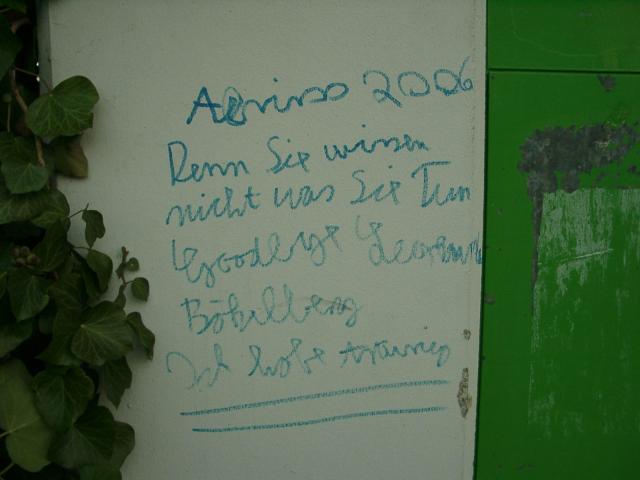 Abriss 2006
Denn Sie wissen
nicht was Sie Tun
Goodbye
Bökelberg
Ich habe traurig